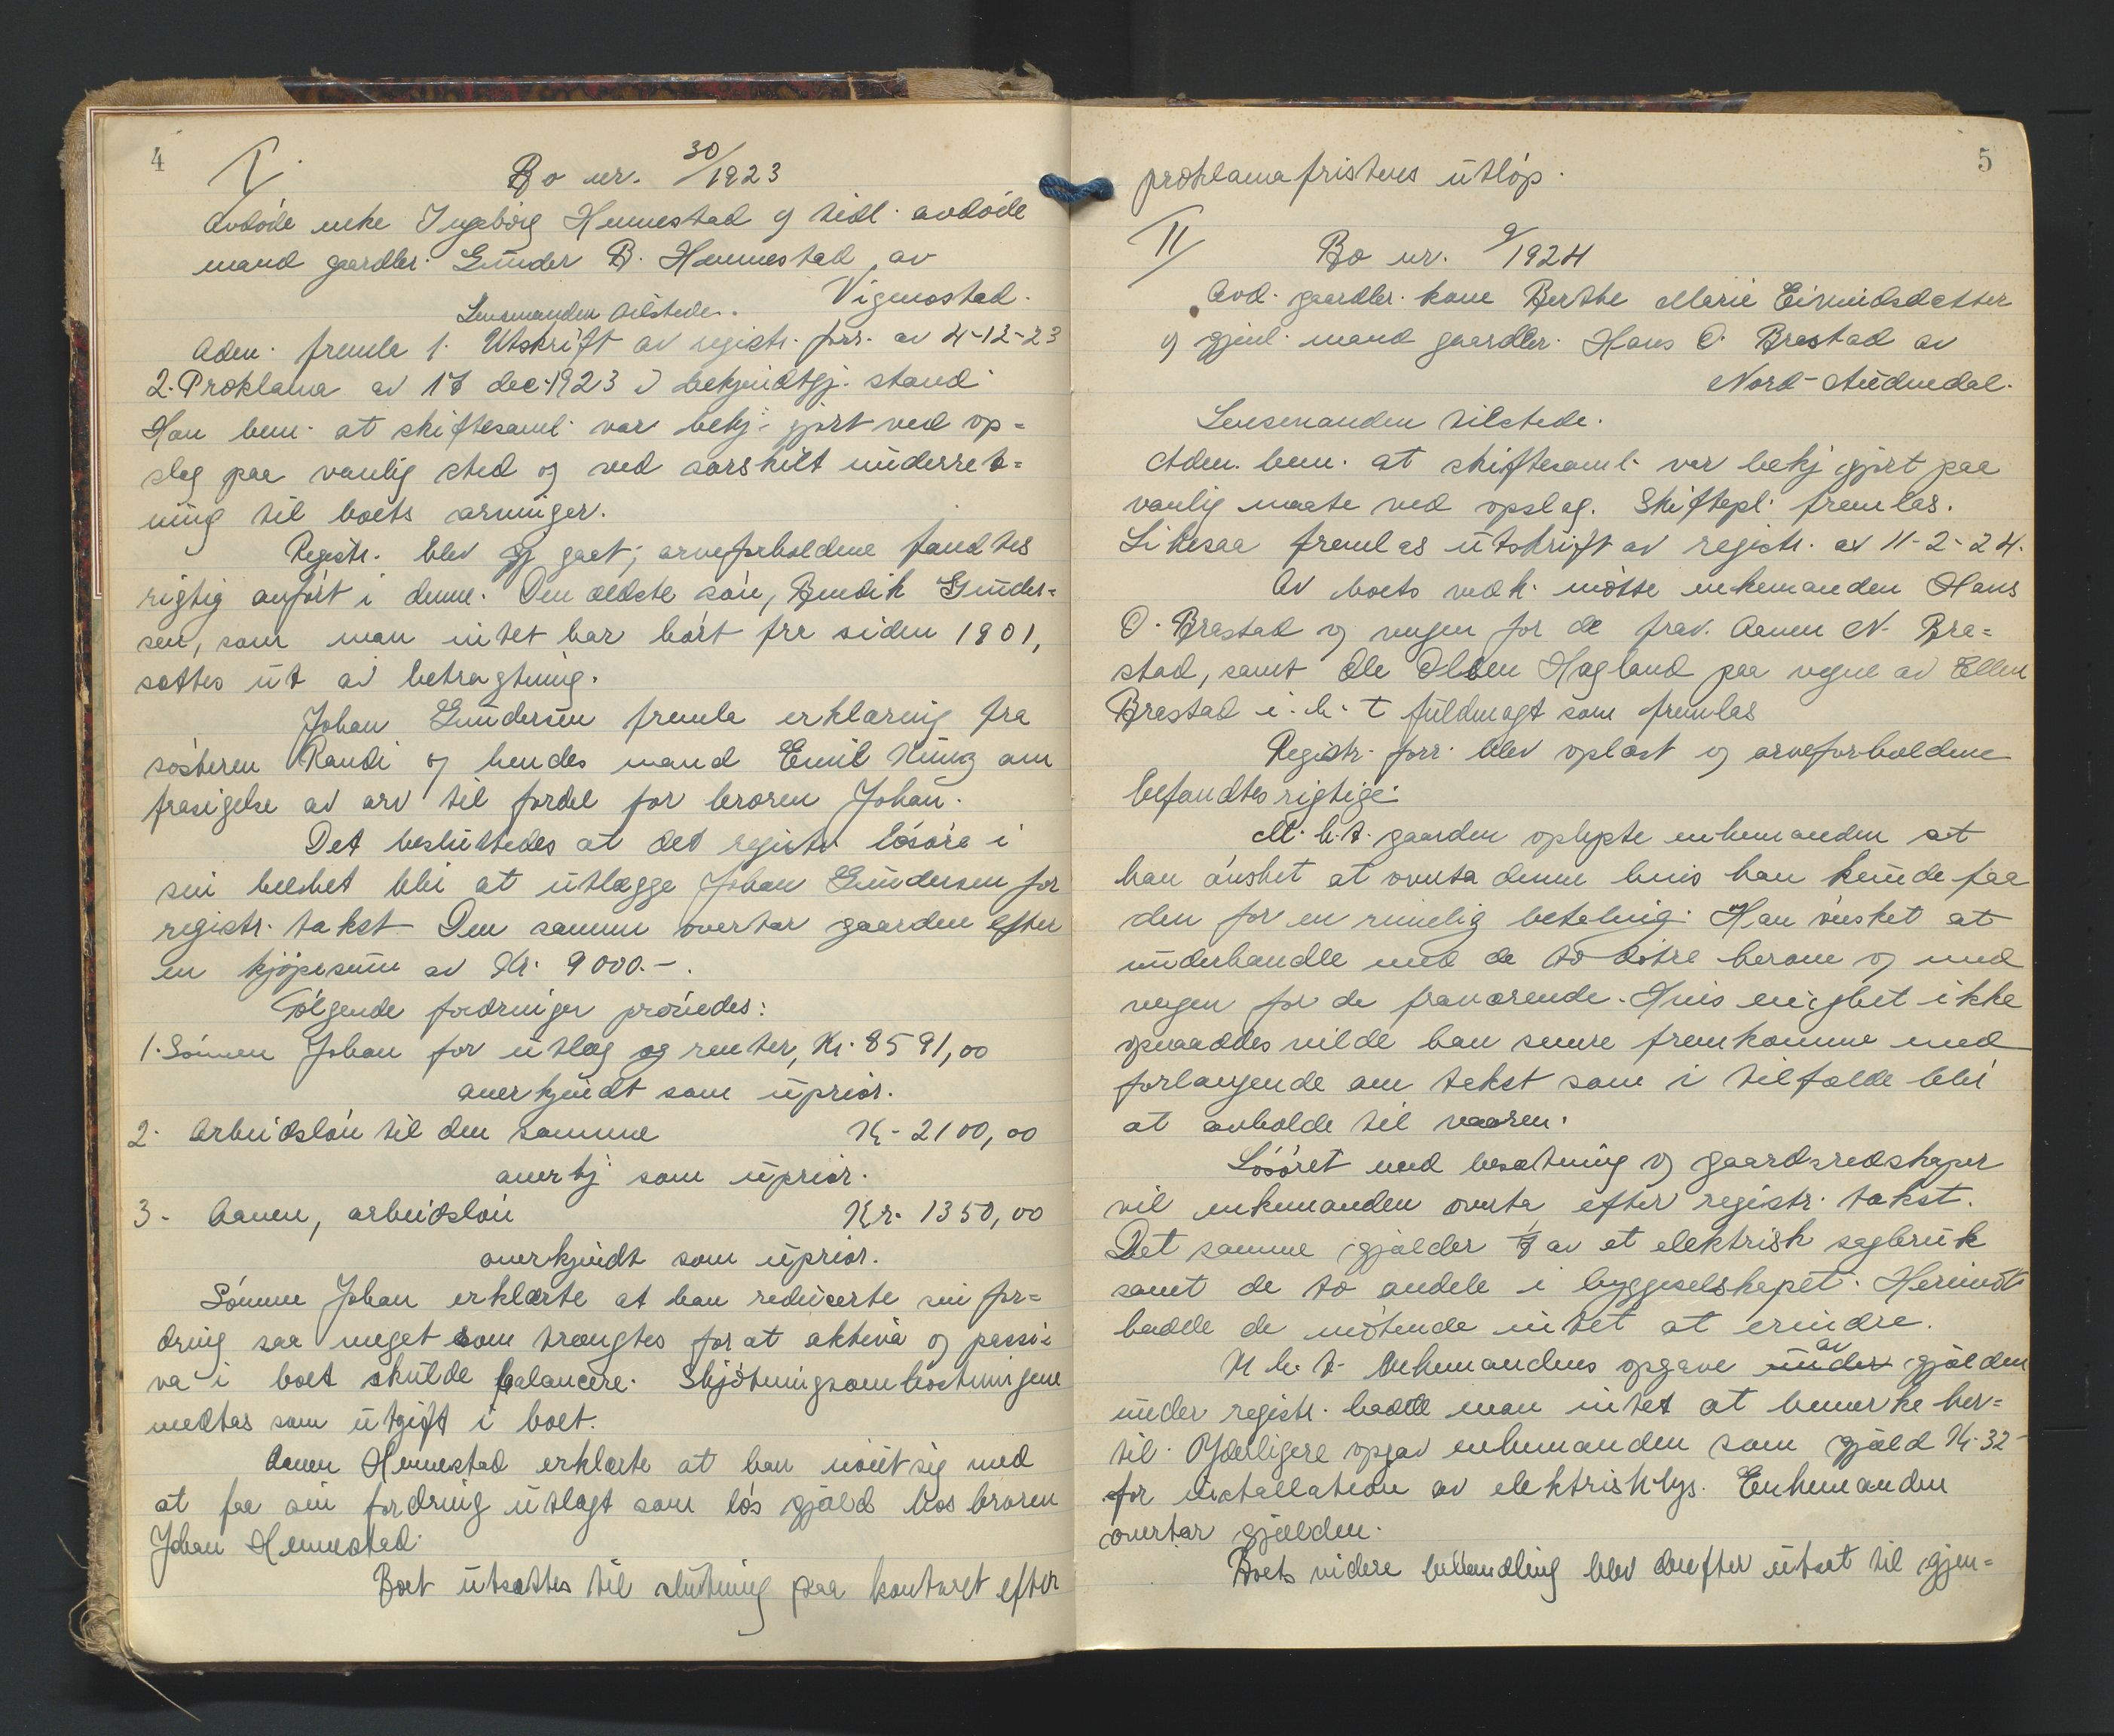 4
I.
Bo nr. 30/1923
Avdöde enke Ingeborg Hennestad og tidl. avdöde
mand gaardbr. Gunder B. Hennestad av
Vigmostad.
Lensmanden tilstede.
Aden. fremla 1. Utskrift av registr. forr. av 4-12-23
2. Proklama av 17 dec. 1923 i bekjendtgj. stand.
Han bem. at skiftesaml. var bekj. gjort ved op=
slag paa vanlig sted og ved særskilt underret=
ning til boets arvinger.
Registr. blev gj gaat; arveforholdene fandtes
rigtig anfört i denne. Den ældste sön, Bendik Gunder=
sen, som man intet har hört fra siden 1901,
sættes ut av betragtning.
Johan Gundersen fremla erklæring fra
sösteren Randi og hendes mand Emil Kung om
frasigelse av arv til fordel for broren Johan.
Det besluttedes at det registr lösöre i
sin helhet blir at utlægge Johan Gundersen for
registr. takst. Den samme overtar gaarden efter
en kjöpesum av Kr. 9000.-.
Fölgende fordringer prövedes:
1. Sönnen Johan for utlæg og renter, Kr. 8591,00
anerkjendt som uprior.
2. Arbeidslön til den samme Kr. 2100,00
anerkj som uprior.
3. Aanen, arbeidslön Kr. 1350,00
anerkjendt som uprior.
Sönnen Johan erklærte at han reducerte sin for=
dring saa meget som trængtes for at aktiva og passi=
va i boet skulde balancere. Skjötningsomkostningene
medtas som utgift i boet.
Aanen Hennestad erklærte at han nöiet sig med
at faa sin fordring utlagt som lös gjæld hos broren
Johan Hennestad.
Boet utsættes til slutning paa kontoret efter
5
proklamafristens utlöp.
II
Bo nr. 9/1924
Avd. gaardbr. kone Berthe Marie Eivindsdatter
og gjenl. mand gaardbr. Hans O. Brastad av
Nord-Audnedal.
Lensmanden tilstede.
Aden. bem. at skiftesaml. var bekj gjort paa
vanlig maate ved opslag. Skiftepl. fremlas.
Likesaa fremlas utskrift av registr. av 11-2-24.
Av boets vedk. mötte enkemanden Hans
O. Brastad og vergen for de frav. Aanen N. Bra=
stad, samt Ole Olsen Hagland paa vegne av Ellen
Brastad i. h. t fuldmagt som fremlas
Registr. forr. blev oplæst og arveforholdene
befandtes rigtige.
M. h. t. gaarden oplyste enkemanden at
han önsket at overta denne hvis han kunde faa
den for en rimelig betaling. Han önsket at
underhandle med de to dötre herom og med
vergen for de fraværende. Hvis enighet ikke
opnaaddes vilde han senere fremkomme med
forlangende om takst som i tilfælde blir
at avholde til vaaren.
Lösöret med besætning og gaardsredskaper
vil enkemanden overta efter registr. takst.
Det samme gjælder av et elektrisk sagbruk
samt de to andele i byggeselskapet. Herimot
hadde de mötende intet at erindre.
M h. t. Enkemandens opgave under av gjælden
under registr. hadde man intet at bemerke her=
til. Yderligere opgav enkemanden som gjæld Kr. 32
for installation av elektrisk lys. Enkemanden
overtar gjælden.
Boets videre behandling blev derefter utsat til gjen=